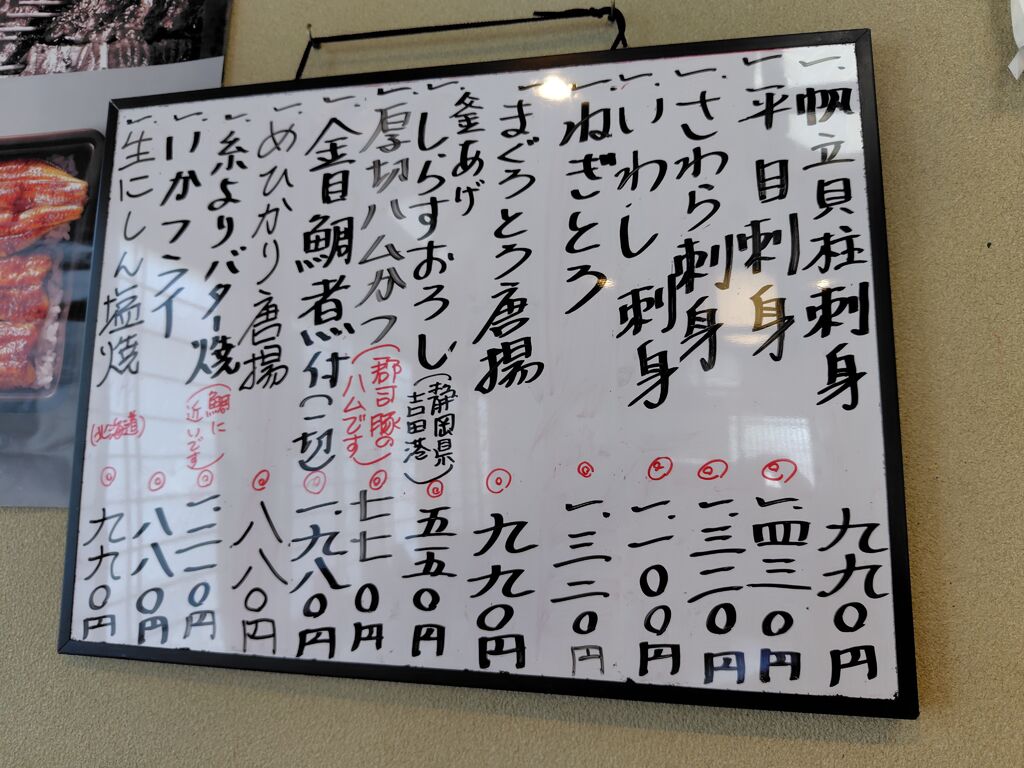 一.帆立貝柱刺身 九九〇円
一.平目刺身 一.四三〇円
一.さわら刺身 一.三二〇円
一.いわし刺身 一.一〇〇円
一.ねぎとろ 一.三二〇円
一.まぐろとろ唐揚 九九〇円
一.釜あげしらすおろし(静岡県吉田港) 五五〇円
一.厚切ハムカツ(郡司豚のハムです) 七七〇円
一.金目鯛煮付(一切) 一.九八〇円
一.めひかり唐揚 八八〇円
一.糸よりバター焼(鯛に近いです) 一.二一〇円
一.いかフライ 八八〇円
一.生にしん塩焼(北海道) 九九〇円